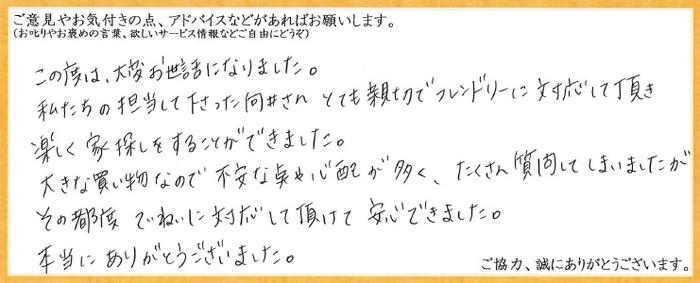 ご意見やお気付きの点、アドバイスなどがあればお願いします。
(お叱りやお褒めの言葉、欲しいサービス情報などご自由にどうぞ)
この度は、大変お世話になりました。
私たちの担当して下さった向井さん とても親切でフレンドリーに対応して頂き
楽しく家探しをすることができました。
大きな買い物なので不安な点や心配が多く、たくさん質問してしまいましたが
その都度 ていねいに対応して頂けて安心できました。
本当にありがとうございました。
ご協力、誠にありがとうございます。